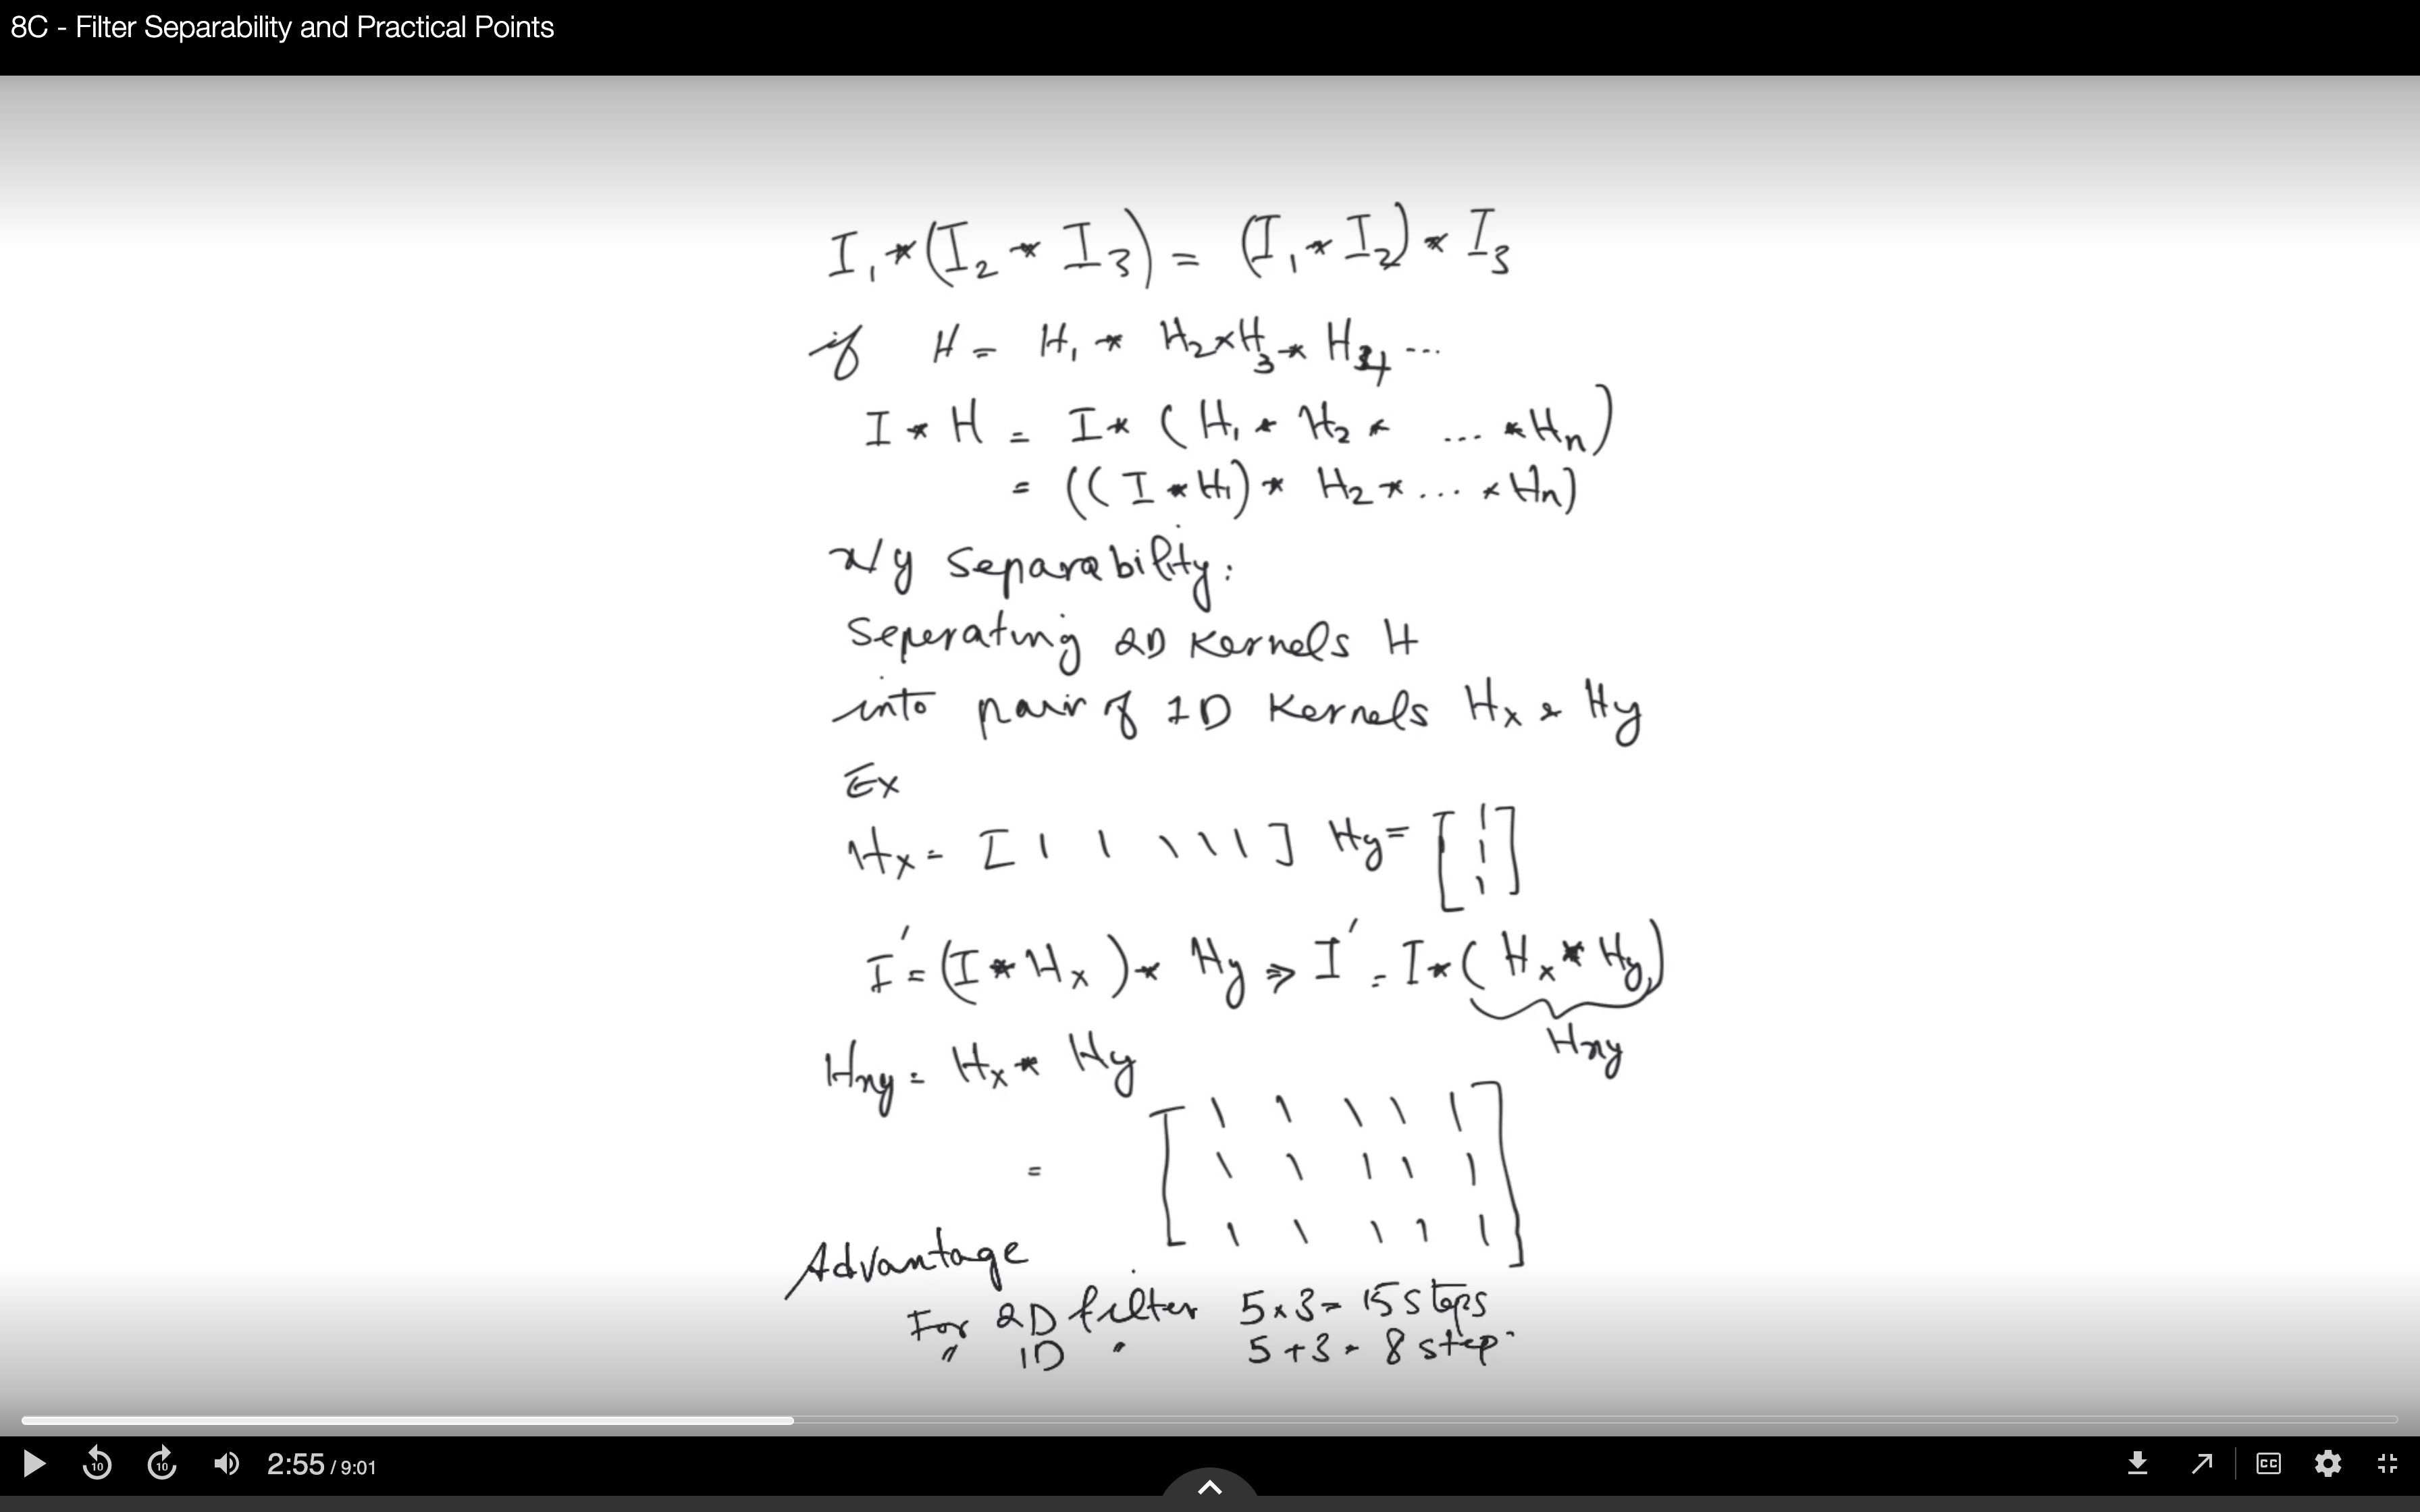 8C - Filter Separability and Practical Points
I₁ * (I₂ * I₃) = (I₁ * I₂) * I₃
if H = H₁ * H₂ * H₃ * H₄ ...
I * H = I * (H₁ * H₂ * ... * Hn)
= ((I * H₁) * H₂ * ... * Hn)
x/y Separability:
Seperating 2D Kernels H
into pair of 1D Kernels Hx & Hy
Ex
Hx = [1 1 1 1 1] Hy = [1
1
1]
I' = (I * Hx) * Hy ⇒ I' = I * (Hx * Hy)
Hxy
Hxy = Hx * Hy
= [1 1 1 1 1
1 1 1 1 1
1 1 1 1 1]
Advantage
For 2D filter 5 x 3 = 15 steps
" 1D " 5 + 3 = 8 step
10 10 2:55 / 9:01 CC